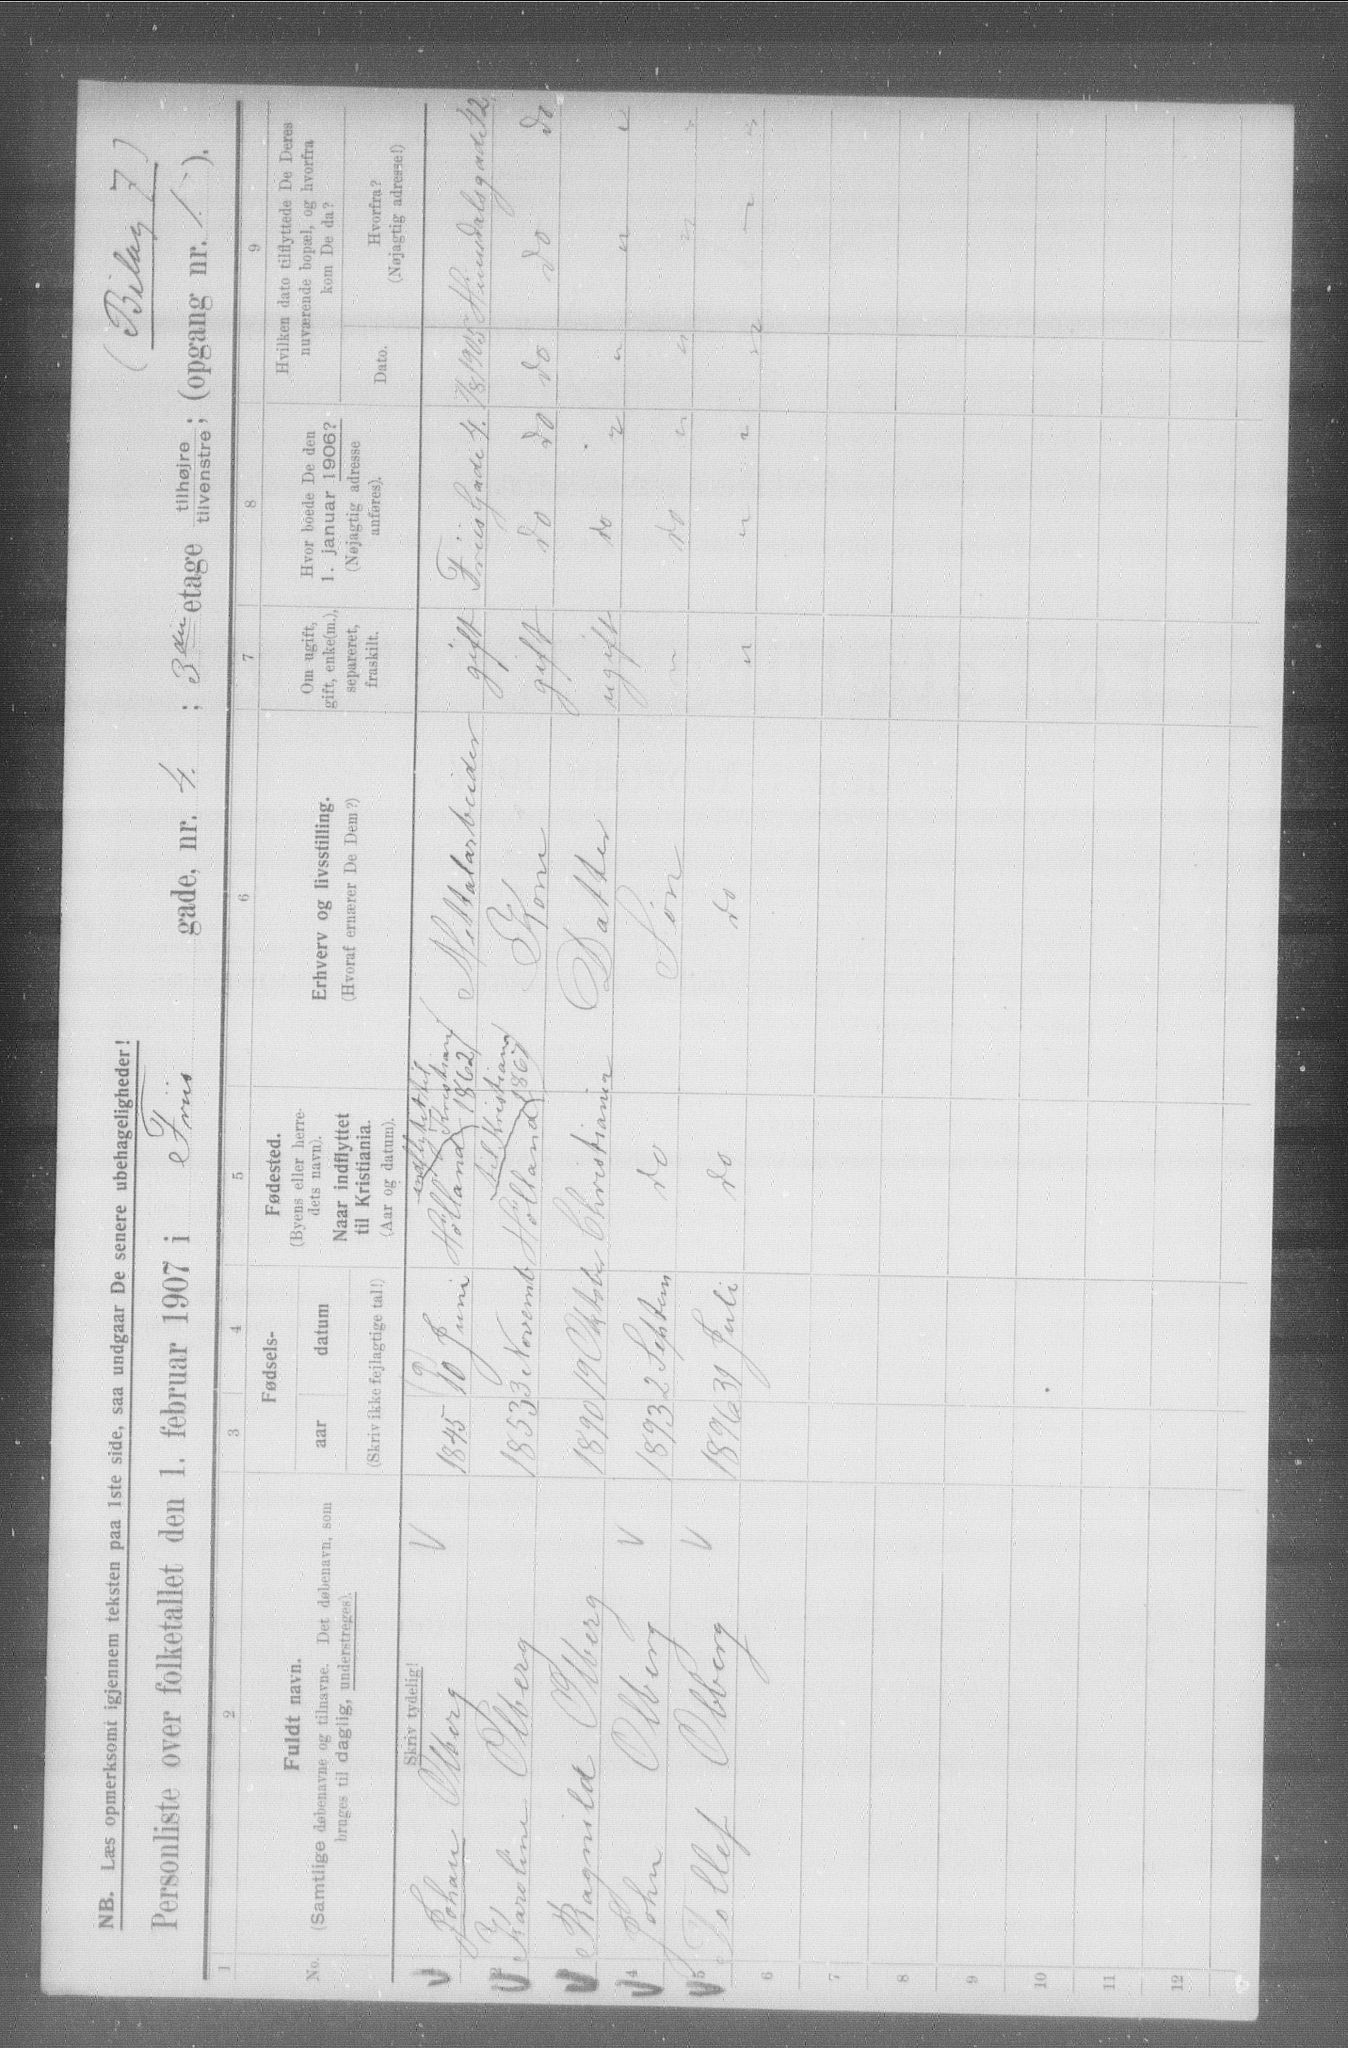 (Bilag 7)
NB. Læs opmerksomt igjennem teksten paa 1ste side, saa undgaar De senere ubehageligheder!
Personliste over folketallet den 1. februar 1907 i Friis gade, nr. 4. ; 3die etage tilhøjre tilvenstre; (opgang nr. 1).
1 2 3 4 5 6 7 8 9
No.
Fuldt navn.
(Samtlige døbenavne og tilnavne. Det døbenavn, som
bruges til daglig, understreges).
Skriv tydelig!
Fødsels-
aar datum
(Skriv ikke fejlagtige tal!)
Fødested.
(Byens eller herre-
dets navn).
Naar indflyttet
til Kristiania.
(Aar og datum).
Erhverv og livsstilling.
(Hvoraf ernærer De Dem?)
Om ugift,
gift, enke(m.),
separeret,
fraskilt.
Hvor boede De den
1. januar 1906?
(Nøjagtig adresse
anføres).
Hvilken dato tilflyttede De Deres
nuværende bopæl, og hvorfra
kom De da?
Dato.
Hvorfra?
(Nøjagtig adresse!)
indflyttet til Kristiania
Johan Olberg V 1845 10 Juni Hølland 1862 Mettalarbeider gift Friis Gade 4. 1905
til Kristiania
2 Karoline Olberg 1853 3 Novemb Hølland 1867 Kone gift do do do do do
Ragnild Olberg 1890 19 Oktober Christiania Datter ugift do " " " "
4 John Olberg V 1893 2 Septem do Søn " do " " " "
5 Tollef Olberg V 1896 31 Juli do do " " " " " "
6
7
8
9
10
11
12